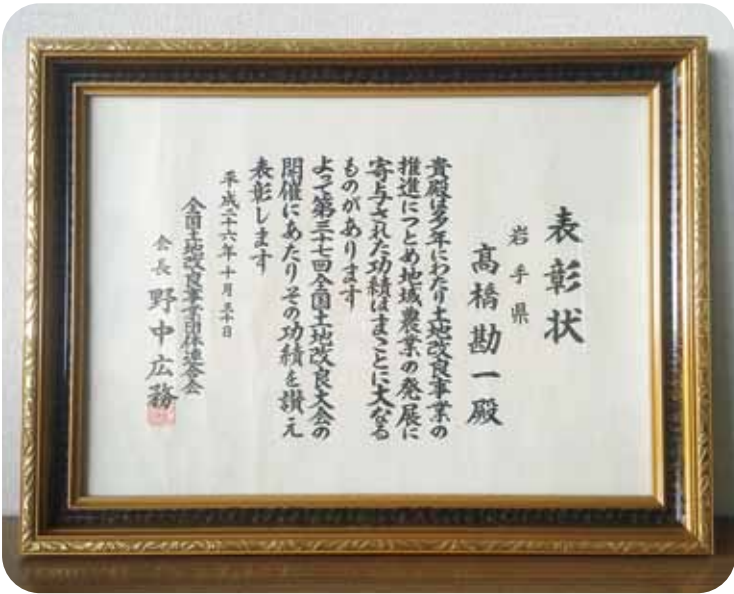 表彰状
岩手県
高橋勘一殿
貴殿は多年にわたり土地改良事業の
推進につとめ地域農業の発展に
寄与された功績はまことに大なる
ものがあります
よって第三十七回全国土地改良大会の
開催にあたりその功績を讃え
表彰します
平成二十六年十月三十日
全国土地改良事業団体連合会
会長 野中広務